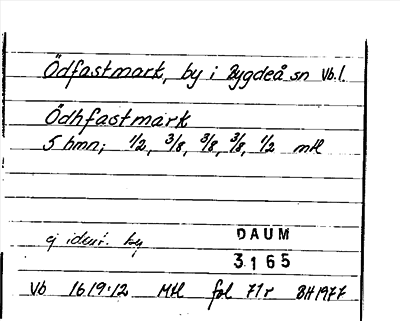 Ödfastmark, by i Bygdeå sn Vb.l.
Ödhfastmark
5 hmn; 1/2, 3/8, 3/8, 3/8, 1/2 mtl
ej ident. by
DAUM
3165
Vb 1619:12 Mtl fol 71r BH 1977